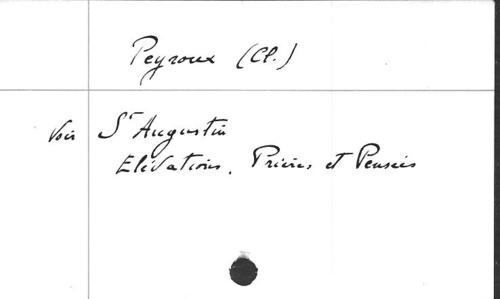 Peyroux (Cl.)
Voir St Augustin
Elévations, Prières et Pensées